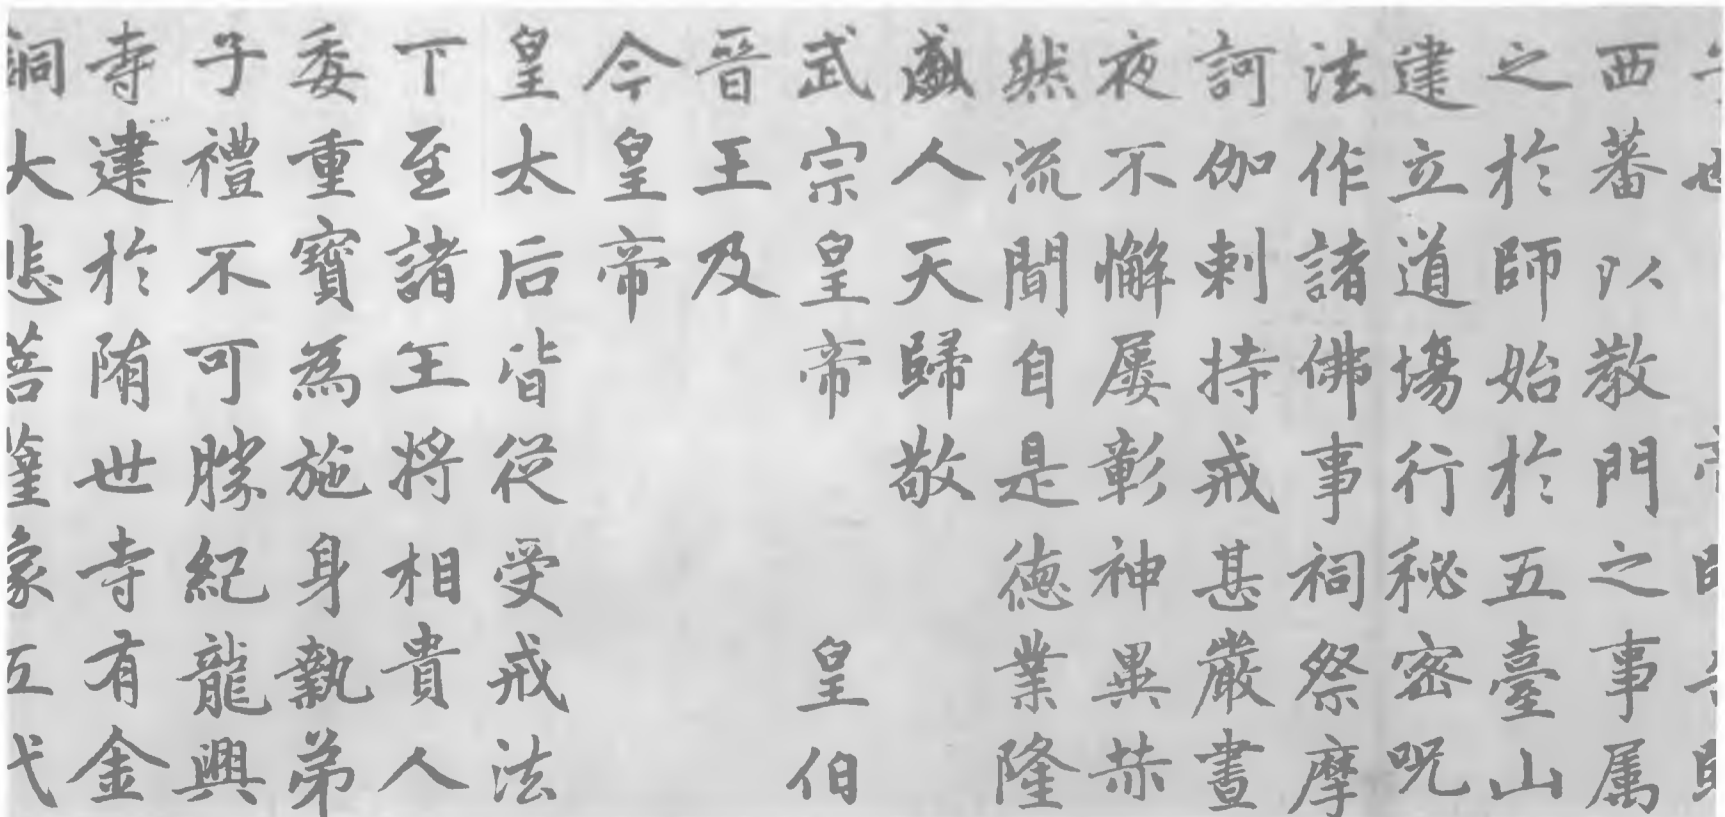 也
西蕃以教門之事属
之於師始於五臺山
建立道場行秘密咒
法作諸佛事祠祭摩
訶伽剌持戒甚嚴晝
夜不懈屢彰神異赫
然流聞自是德業隆
盛人天歸敬
武宗皇帝 皇伯
晉王及
今皇帝
皇太后皆從受戒法
下至諸王將相貴人
委重寶為施身執弟
子禮不可勝紀龍興
寺建於隋世寺有金
銅大悲菩薩像五代